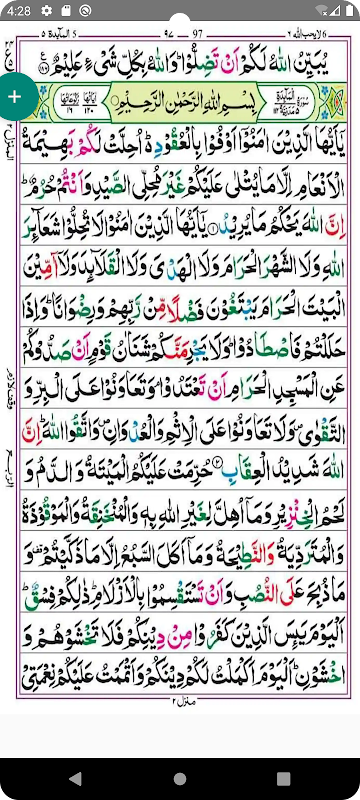 4:28
لايحب الله ٦ 97 ٩٧ المآيدة ٥
يُبَيِّنُ اللّٰهُ لَكُمْ اَنْ تَضِلُّوْا ؕ وَاللّٰهُ بِكُلِّ شَیْءٍ عَلِيْمٌ
بِسْمِ اللّٰهِ الرَّحْمٰنِ الرَّحِيْمِ
يٰۤاَيُّهَا الَّذِيْنَ اٰمَنُوْۤا اَوْفُوْا بِالْعُقُوْدِ ؕ۬ اُحِلَّتْ لَكُمْ بَهِيْمَةُ
الْاَنْعَامِ اِلَّا مَا يُتْلٰى عَلَيْكُمْ غَيْرَ مُحِلِّی الصَّيْدِ وَاَنْتُمْ حُرُمٌ ؕ
اِنَّ اللّٰهَ يَحْكُمُ مَا يُرِيْدُ ۝١ يٰۤاَيُّهَا الَّذِيْنَ اٰمَنُوْا لَا تُحِلُّوْا شَعَآئِرَ
اللّٰهِ وَلَا الشَّهْرَ الْحَرَامَ وَلَا الْهَدْیَ وَلَا الْقَلَآئِدَ وَلَاۤ آٰمِّيْنَ
الْبَيْتَ الْحَرَامَ يَبْتَغُوْنَ فَضْلًا مِّنْ رَّبِّهِمْ وَرِضْوَانًا ؕ وَاِذَا
حَلَلْتُمْ فَاصْطَادُوْا ؕ وَلَا يَجْرِمَنَّكُمْ شَنَاٰنُ قَوْمٍ اَنْ صَدُّوْكُمْ
عَنِ الْمَسْجِدِ الْحَرَامِ اَنْ تَعْتَدُوْا ۘ وَتَعَاوَنُوْا عَلَى الْبِرِّ وَ
التَّقْوٰى ۪ وَلَا تَعَاوَنُوْا عَلَى الْاِثْمِ وَالْعُدْوَانِ ۪ وَاتَّقُوا اللّٰهَ ؕ اِنَّ
اللّٰهَ شَدِيْدُ الْعِقَابِ ۝٢ حُرِّمَتْ عَلَيْكُمُ الْمَيْتَةُ وَالدَّمُ وَ
لَحْمُ الْخِنْزِيْرِ وَمَاۤ اُهِلَّ لِغَيْرِ اللّٰهِ بِهٖ وَالْمُنْخَنِقَةُ وَالْمَوْقُوْذَةُ
وَالْمُتَرَدِّيَةُ وَالنَّطِيْحَةُ وَمَاۤ اَكَلَ السَّبُعُ اِلَّا مَا ذَكَّيْتُمْ ۫ وَ
مَا ذُبِحَ عَلَى النُّصُبِ وَاَنْ تَسْتَقْسِمُوْا بِالْاَزْلَامِ ؕ ذٰلِكُمْ فِسْقٌ ؕ
اَلْيَوْمَ يَئِسَ الَّذِيْنَ كَفَرُوْا مِنْ دِيْنِكُمْ فَلَا تَخْشَوْهُمْ وَ
اخْشَوْنِ ؕ اَلْيَوْمَ اَكْمَلْتُ لَكُمْ دِيْنَكُمْ وَاَتْمَمْتُ عَلَيْكُمْ نِعْمَتِیْ
منزل ٢